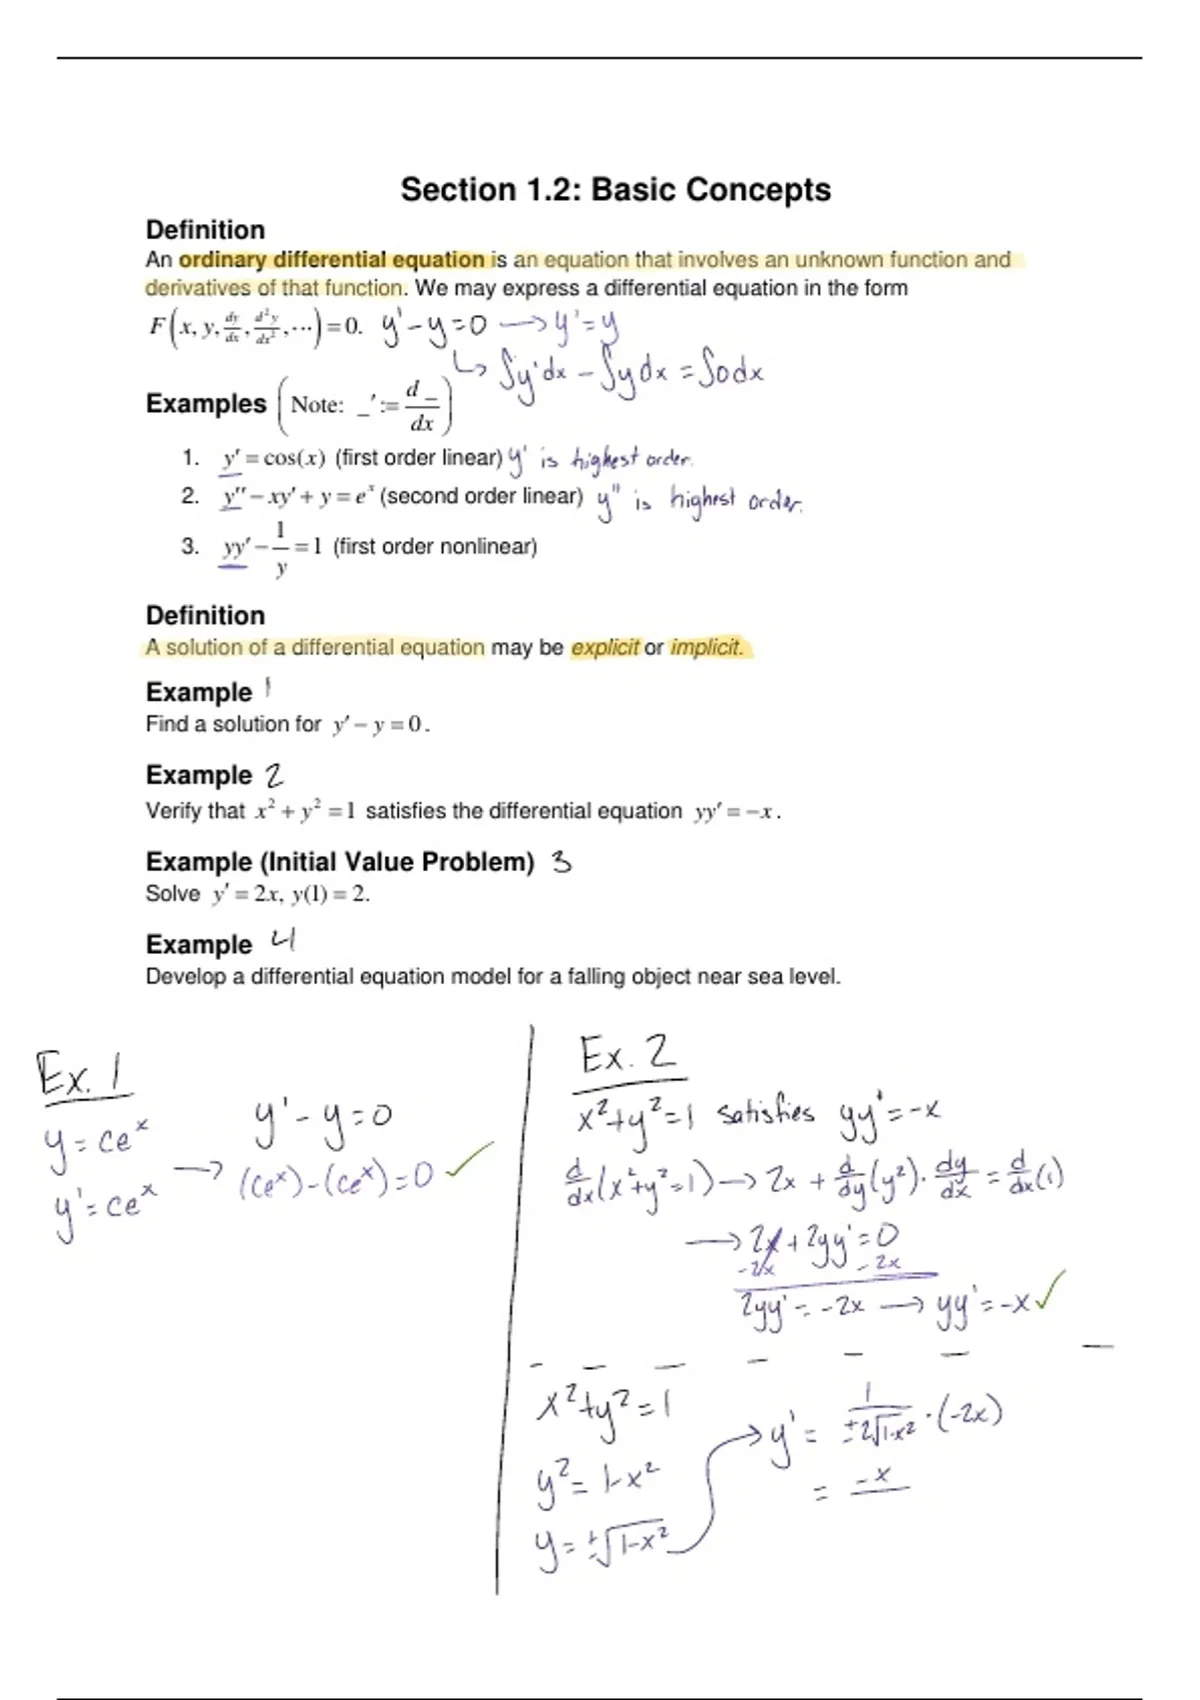 Section 1.2: Basic Concepts
Definition
An ordinary differential equation is an equation that involves an unknown function and
derivatives of that function. We may express a differential equation in the form
F(x, y, dy/dx, d²y/dx², ···) = 0. y' - y = 0 → y' = y
↳ ∫y'dx - ∫ydx = ∫0dx
Examples (Note: _' := d_/dx)
1. y' = cos(x) (first order linear) y' is highest order.
2. y'' - xy' + y = eˣ (second order linear) y'' is highest order.
3. yy' - 1/y = 1 (first order nonlinear)
Definition
A solution of a differential equation may be explicit or implicit.
Example 1
Find a solution for y' - y = 0.
Example 2
Verify that x² + y² = 1 satisfies the differential equation yy' = -x.
Example (Initial Value Problem) 3
Solve y' = 2x, y(1) = 2.
Example 4
Develop a differential equation model for a falling object near sea level.
Ex. 1
y = ceˣ
y' = ceˣ
→
y' - y = 0
(ceˣ) - (ceˣ) = 0 ✓
Ex. 2
x² + y² = 1 satisfies yy' = -x
d/dx(x² + y² = 1) → 2x + d/dy(y²) · dy/dx = d/dx(1)
→ 2x + 2yy' = 0
-2x -2x
2yy' = -2x → yy' = -x ✓
x² + y² = 1
y² = 1 - x²
y = ±√1-x²
→ y' = 1/±2√1-x² · (-2x)
= -x